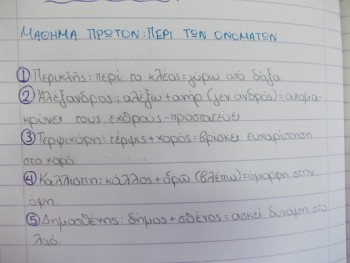 ΜΑΘΗΜΑ ΠΡΩΤΟΝ: ΠΕΡΙ ΤΩΝ ΟΝΟΜΑΤΩΝ
① Περικλής: περί το κλέος = γύρω από δόξα
② Αλέξανδρος: αλέξω + ανήρ (γεν ανδρος) = απομα-
κρύνει τους εχθρούς - προστατεύει
③ Τερψιχόρη: τέρψις + χορός = βρίσκει ευχαρίστηση
στο χορό.
④ Καλλιόπη: κάλλος + (βλέπω) = όμορφη στην
όψη.
⑤ Δημοσθένης: δήμος + σθένος = ασκεί δύναμη στο
λαό.